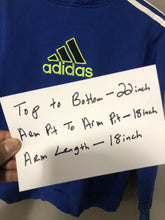 adidas
Top to Bottom - 22 inch
Arm Pit To Arm Pit - 18 Inch
Arm Length - 18 inch